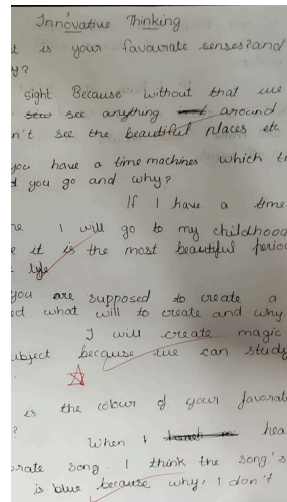 Innovative Thinking
t is your favourate senses? and
y?
sight. Because without that we
see anything around
n't see the beautiful places etc
you have a time machines which ti
d you go and why?
If I have a time
ne I will go to my childhood
e it is the most beautiful period
life
you are supposed to create a
ct what will to create and why
I will create magic
ubject because we can study
is the colour of your favorat
?
When I hea
orate song. I think the song's
is blue because why, I don't